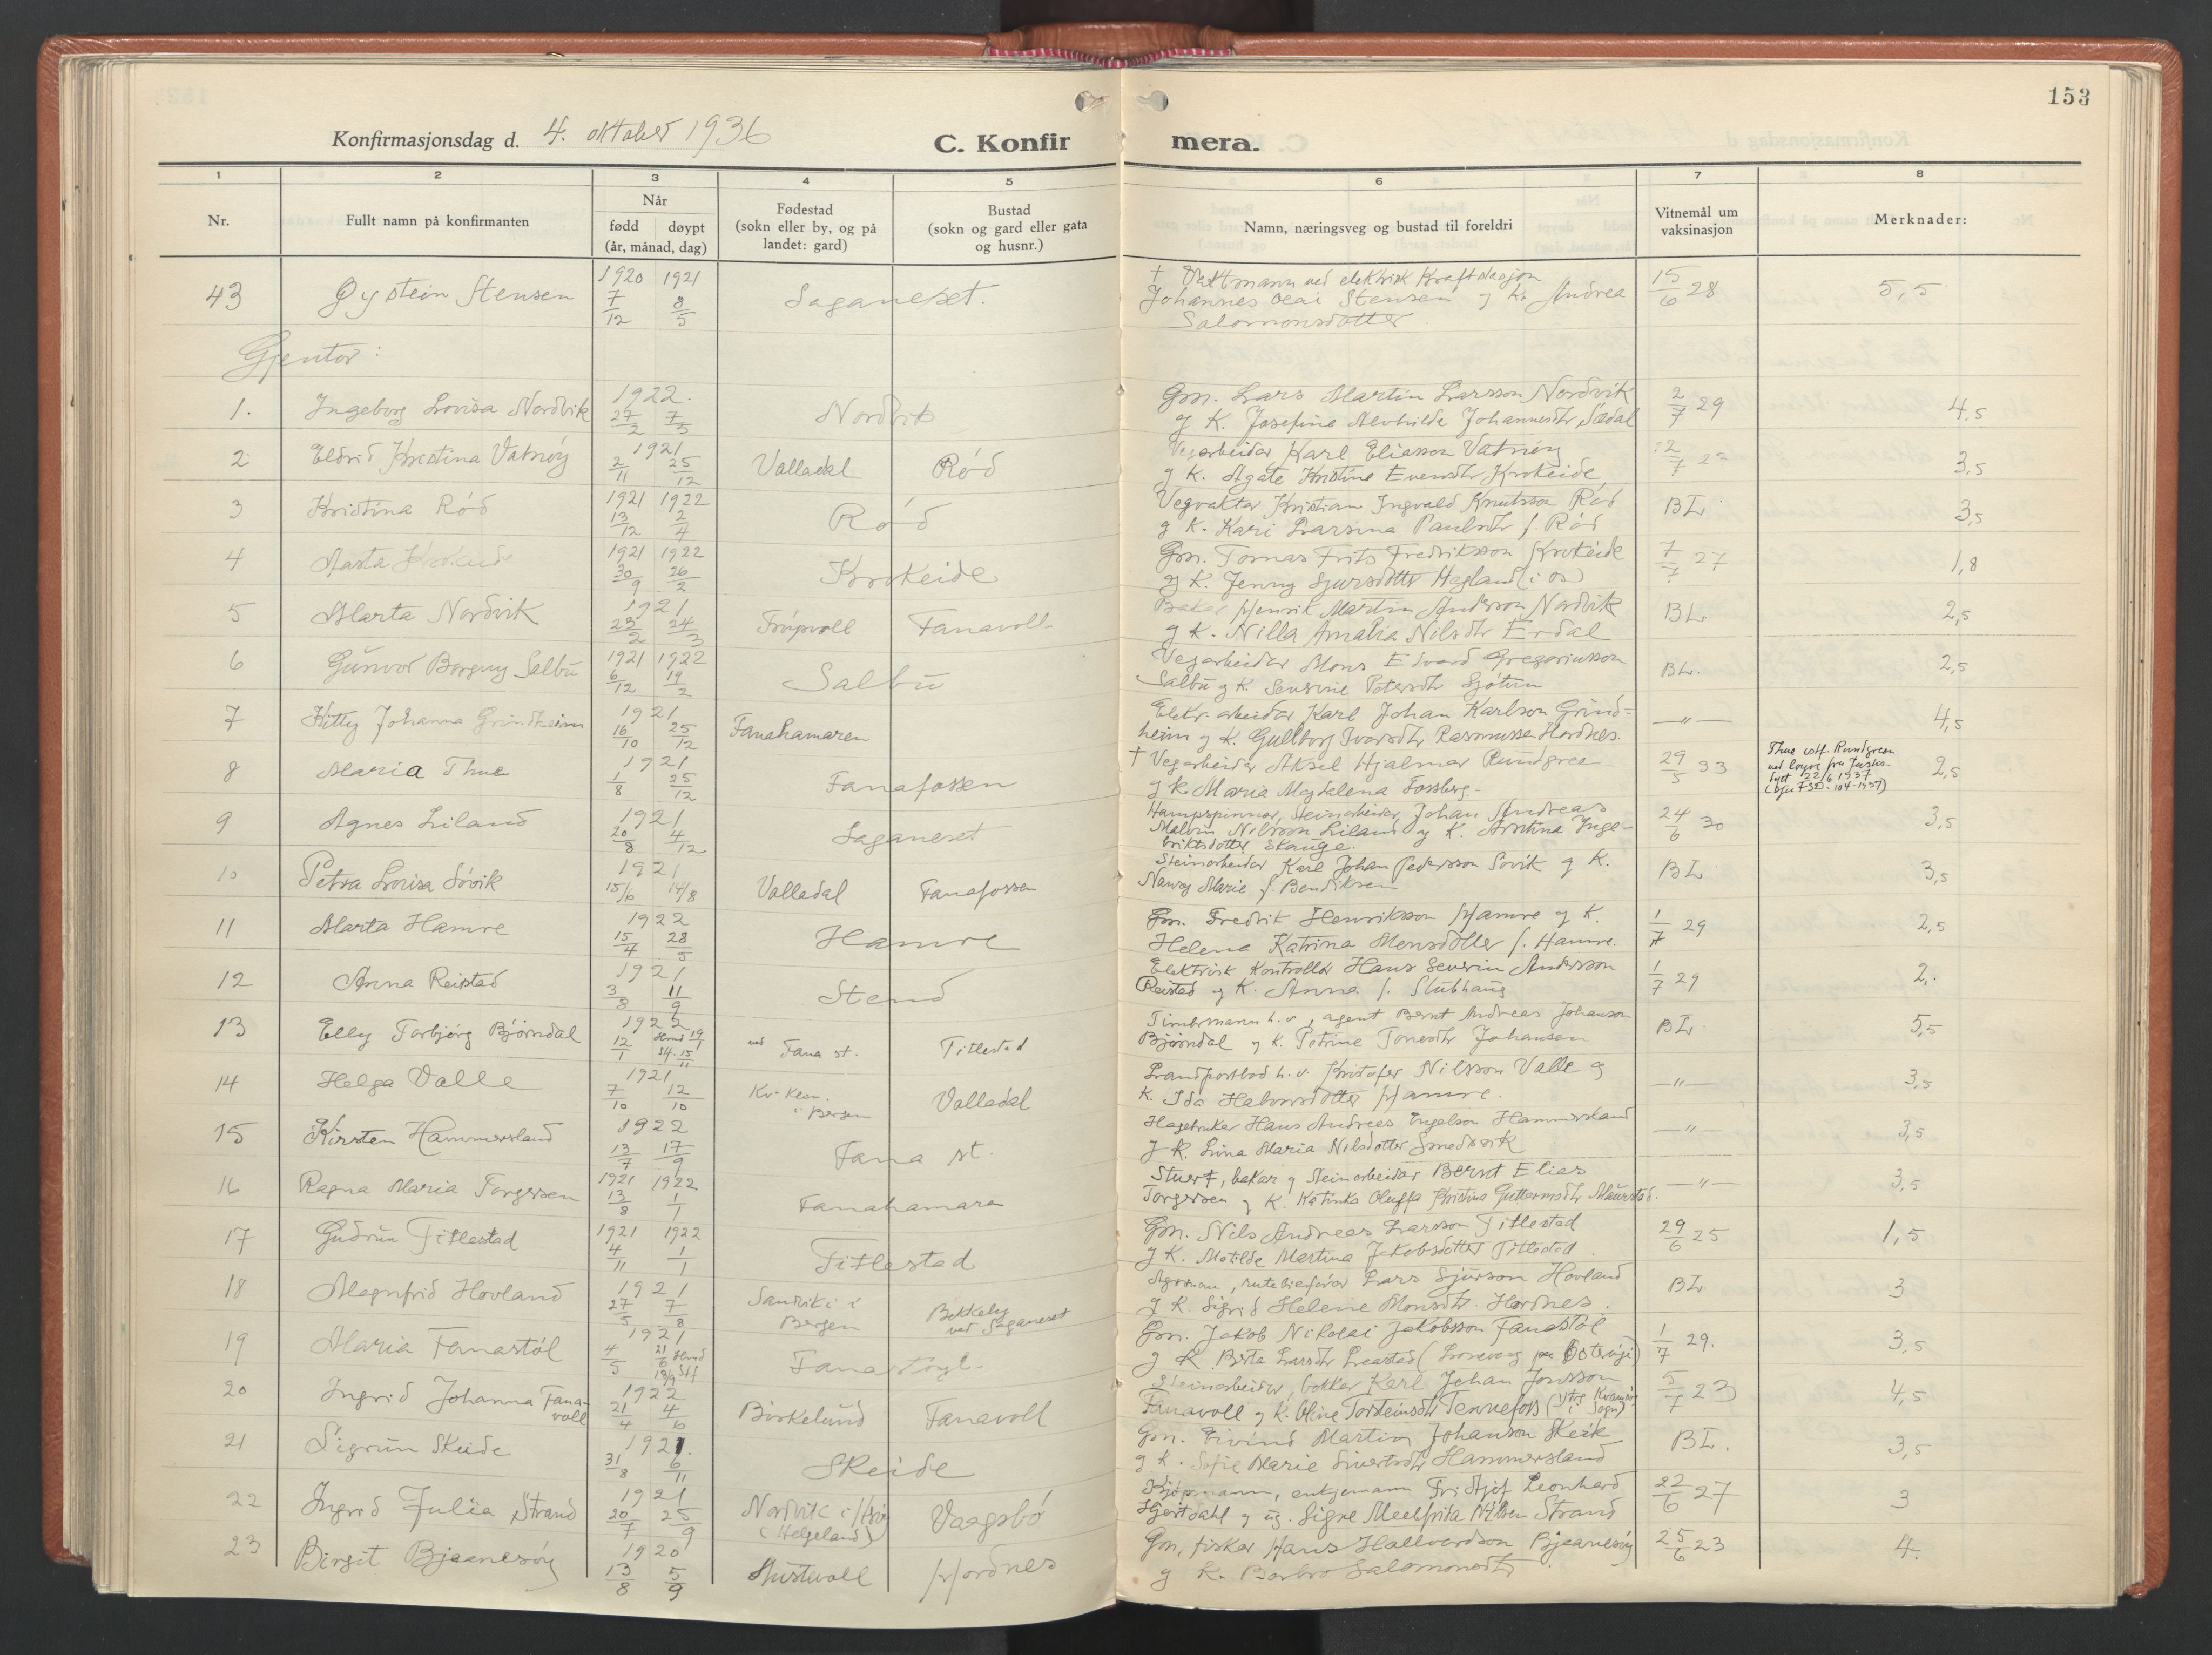 153
Konfirmasjonsdag d. 4. oktober 1936
C. Konfir mera.
1 2 3 4 5 6 7 8
Nr.
Fullt namn på konfirmanten
Når
fødd døypt
(år, månad, dag)
Fødestad
(sokn eller by, og på
landet: gard)
Bustad
(sokn og gard eller gata
og husnr.)
Namn, næringsveg og bustad til foreldri
Vitnemål um
vaksinasjon
Merknader:
43 Øystein Stensen 1920 7/12 1921 8/5 Saganeset.
† Vaktmann ved elektrisk Kraftstasjon
Johannes Olai Stensen og K. Andrea
Salomonsdotter.
15/6 28 5,5
Gjentor:
1. Ingeborg Lovisa Nordvik 1922. 27/2 7/5 Nordvik
Gm. Lars Martin Larsson Nordvik
og K. Josefine Alvhilde Johannesdtr Sædal
2/7 29 4,5
2 Eldrid Kristina Vatnøy 1921 2/11 25/12 Valladal Rød
Vegarbeidar Karl Eliasson Vatnøy
og K. Agate Kristine Evensdtr Krokeide
3,5
3 Kristina Rød 1921 13/12 1922 2/4 Rød
Vegvaktar Kristian Ingvald Knutsson Rød
og K. Kari Larsina Paulsdtr f. Rød
BL. 3,5
4 Aasta Krokeide 1921 30/9 1922 26/2 Krokeide
Gm. Tomas Frits Fredriksson Krokeide
og K. Jenny Sjursdotter Hegland (i Os)
7/7 27 1,8
5 Marta Nordvik 1921 23/2 24/3 Fanavoll
Bakar Henrik Martin Andersson Nordvik
og K. Nilla Amalia Nilsdtr Erdal
BL. 2,5
6 Gunvor Borgny Salbu 1921 6/12 1922 19/2 Salbu
Vegarbeidar Mons Edvard Gregoriusson
Salbu og K. Sensine Petersdtr
BL. 2,5
7 Kitty Johanna Grindheim 1921 16/10 25/12 Fanahamaren
Elektr. arbeidar Karl Johan Karlson Grind-
heim og K. Gullborg Ivarsdtr Rasmussen Hordnes.
—"— 4,5
8 Maria Thue 1921 1/8 25/12 Fanafossen
† Vegarbeidar Aksel Hjalmar Rundgreen
og K. Maria Magdalena Fossberg.
29/5 33
Thue istf. Rundgreen
ved løyve fra Justis-
22/6 1937
2,5
9 Agnes Liland 1921 20/8 4/12 Saganeset
Hampspinnar, steinarbeidar, Johan Andreas
Malvin Nilsson Liland og K. Inge-
briktsdotter Skauge.
24/6 30 3,5
10 Petra Lovisa Søvik 1921 15/6 14/8 Valladal Fanafossen
Steinarbeidar Karl Johan Pedersson Søvik og K.
Nancy Marie f. Bendiksen
BL 3,5
11 Marta Hamre 1922 15/4 28/5 Hamre
Gm. Fredrik Henriksson Hamre og K.
Helena Katrina Monsdotter f. Hamre.
1/7 29 2,5
12 Anna Reistad 1921 3/8 11/9 Stend
Elektrisk Kontrollør Hans Severin Andersson
Reistad og K. Anna f. Stubhaug
1/7 29 2.
13 Elly Torbjørg Bjørndal 1922 12/1 ved Fana st. Titlestad
Timbrmann h.v., agent Bernt Andreas Johanson
Bjørndal og K. Petrine Tonesdtr Johansen
BL. 5,5
14 Helga Valle 1921 7/10 12/10 Kv. klin. i Bergen Valladal
Landpostbod h.v. Kristofer Nilsson Valle og
K. Ida Halvorsdotter Hamre.
—"— 3,5
15 Kirsten Hammersland 1922 13/7 17/9 Fana st.
Hagebrukar Hans Andreas Engelson Hammersland
og K. Lina Maria Nilsdotter Smedsvik
—"— 3,5
16 Ragna Maria Torgersen 1921 13/8 1922 1/1 Fanahamaren
Stuert, bakar og steinarbeidar Bernt Elias
Torgersen og K. Katinka Oluffa Kristine Guttormsdtr Maurstad.
—"— 3,5
17 Gudrun Titlestad 1921 4/11 1922 1/1 Titlestad
Gm. Nils Andreas Larsson Titlestad
og K. Matilde Martina Jakobsdotter Titlestad.
29/6 25 1,5
18 Magnfrid Hovland 1921 27/5 7/8 Sandvik i Bergen Bekkeby ved Saganeset
Agronom, rutebilførar Lars Sjurson Hovland
og K. Sigrid Helene Monsdtr. Hordnes.
BL 3
19 Maria Fanastøl 1921 4/5 21/6 Fanastøyl
Gm. Jakob Nikolai Jakobsson Fanastøl
og K. Berta Larsdtr
1/7 29. 3,5
20 Ingrid Johanna Fana-
voll 1922 21/4 4/6 Birkelund Fanavoll
Steinarbeidar, bøkker Karl Johan Jonsson
Fanavoll og K. Oline Torsteinsdtr Tennefoss
5/7 23 4,5
21 Sigrun Skeide 1921. 31/8 6/11 Skeide
Gm. Eivind Martin Johanson Skeie
og K. Sofie Marie Sivertsdtr Hammersland
BL. 3,5
22 Ingrid Julia Strand 1921 20/7 25/9 Nordvik i (Helgeland) Vaagsbø
Kjøpmann, enkjemann Fridtjof Leonhard
Hjertdahl og ug. Signe Meelfrida Nilsen Strand
22/6 27 3
23 Birgit Bjaanesøy 1920 13/8 5/9 Austevoll Hordnes
Gm, fiskar Hans Hallvardson Bjaanesøy
og K. Barbro Salomonsdtr.
25/6 23 4.